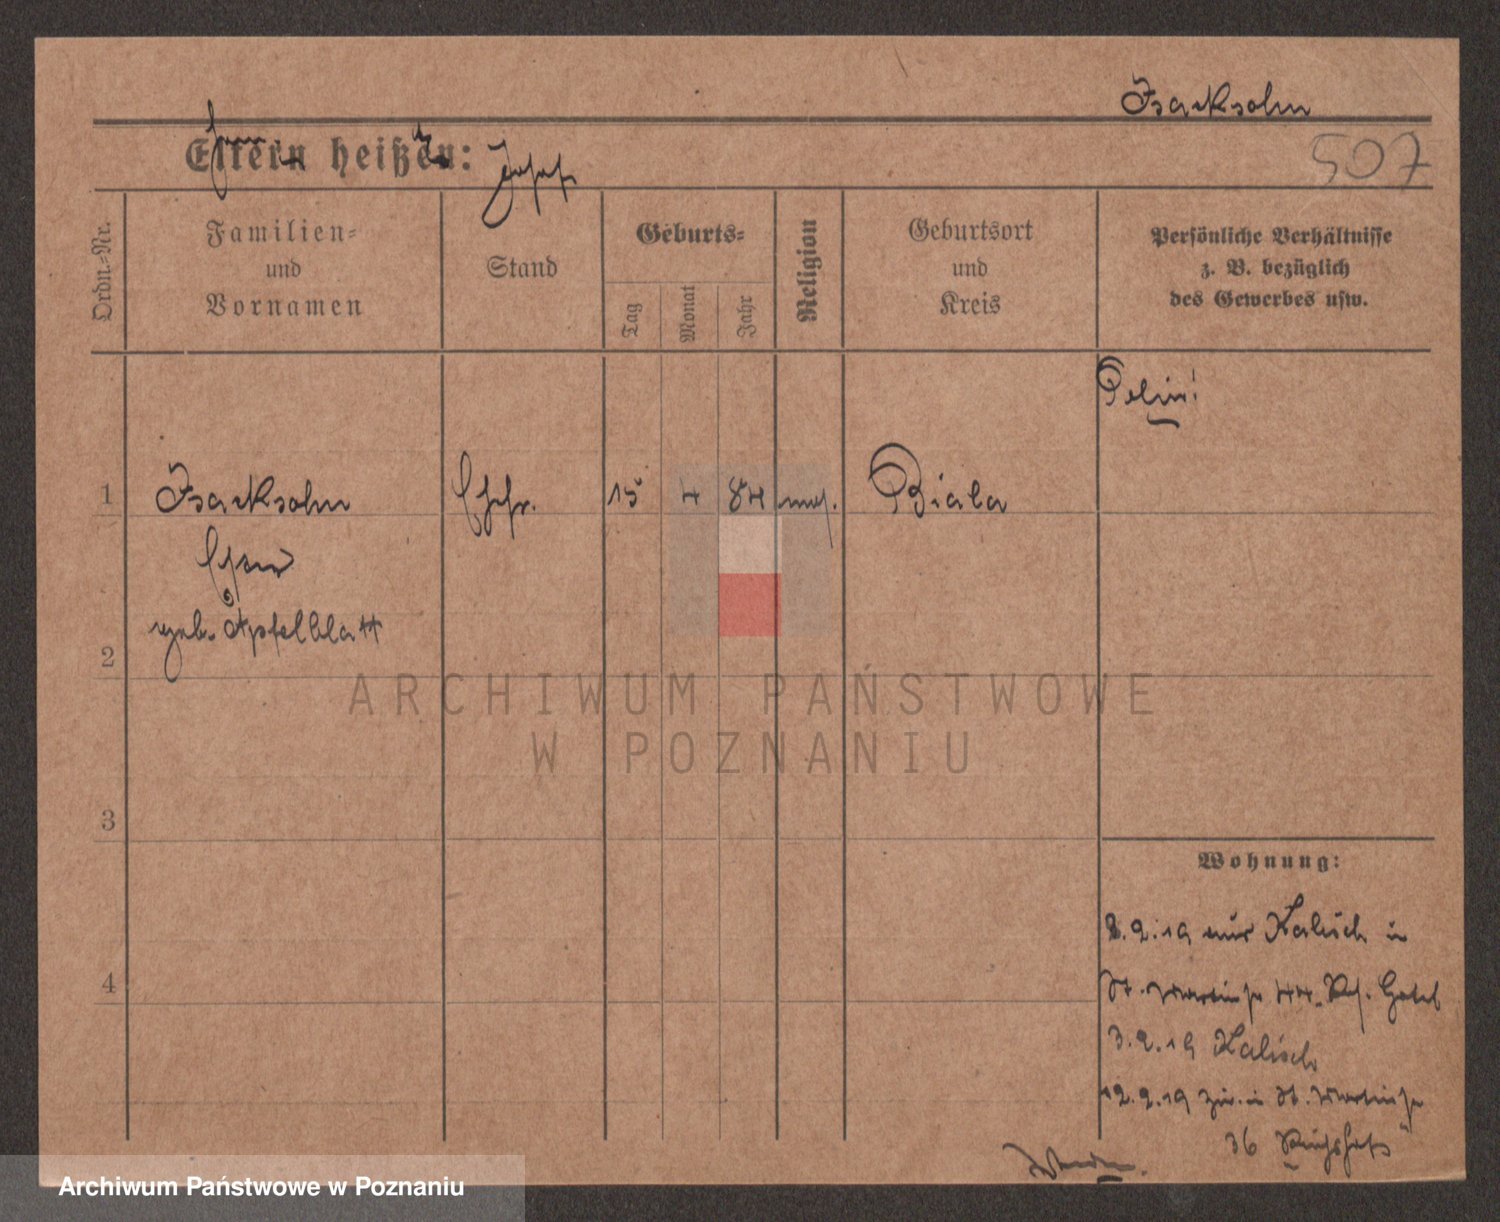 Isacksohn
507
Eltern heißen:
Josef
Ordn.-Nr.
Familien-
und
Vornamen
Stand
Geburts-
Tag
Monat
Jahr
Religion
Geburtsort
und
Kreis
Persönliche Verhältnisse
z. B. bezüglich
des Gewerbes usw.
Polin!
1
Isacksohn
Ehefr.
15
4
84
mos.
Biala
geb. Apfelblatt
2
ARCHIWUM PAŃSTWOWE
W POZNANIU
3
Wohnung:
8.2.19 aus Kalisch in
4
St. Martinstr 44 Hotel
3.2.19 Kalisch
12.2.19 zur. in St. Martinstr
36
Archiwum Państwowe w Poznaniu